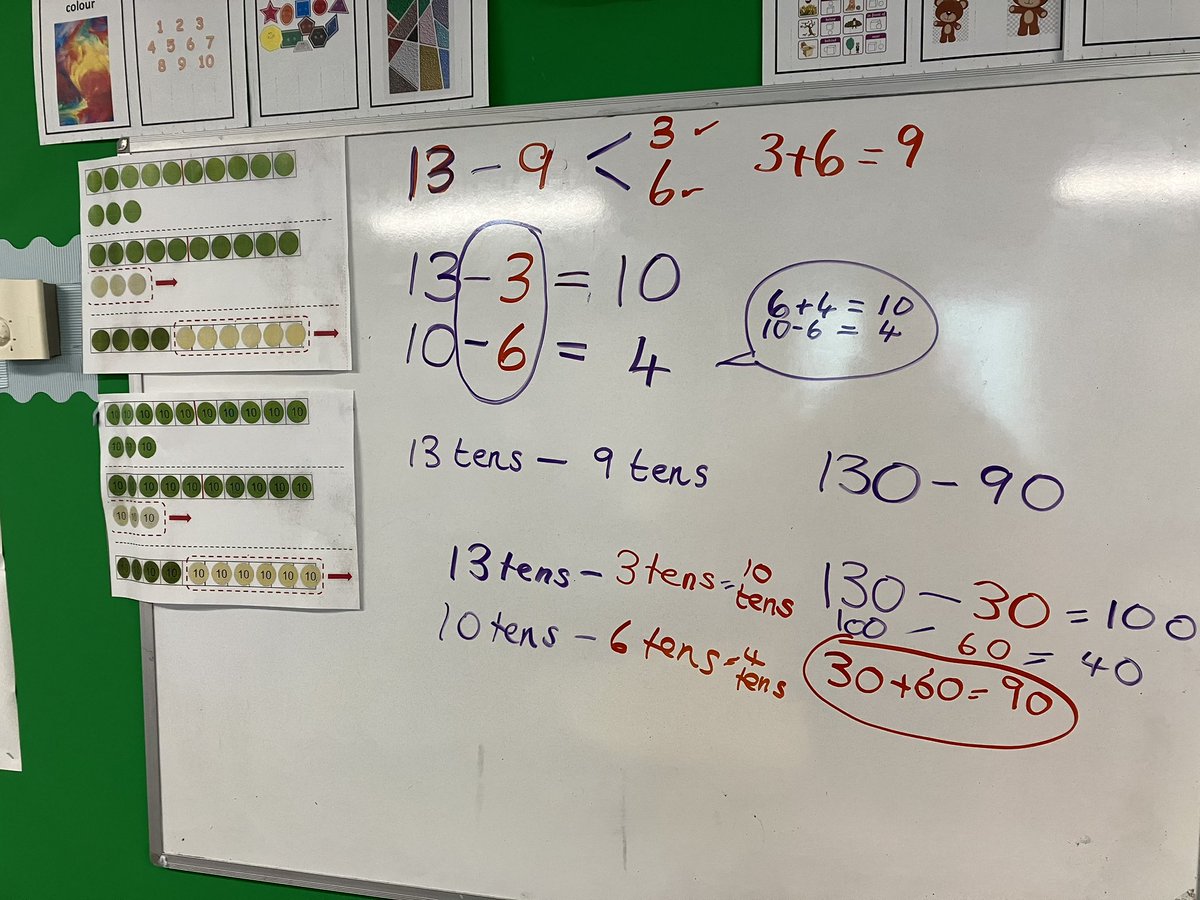 colour
1 2 3
4 5 6 7
8 9 10
13 - 9 < 3 ✓ 6 ✓
3+6 = 9
13 - 3 = 10
10 - 6 = 4
6 + 4 = 10
10 - 6 = 4
13 tens - 9 tens
130 - 90
13 tens - 3 tens = 10 tens
10 tens - 6 tens = 4 tens
130 - 30 = 100
100 - 60 = 40
30+60= 90
10 10 10 10 10 10 10 10 10 10
10 10 10
10 10 10 10 10 10 10 10 10 10
10 10 10
10 10 10 10 10 10 10 10 10 10